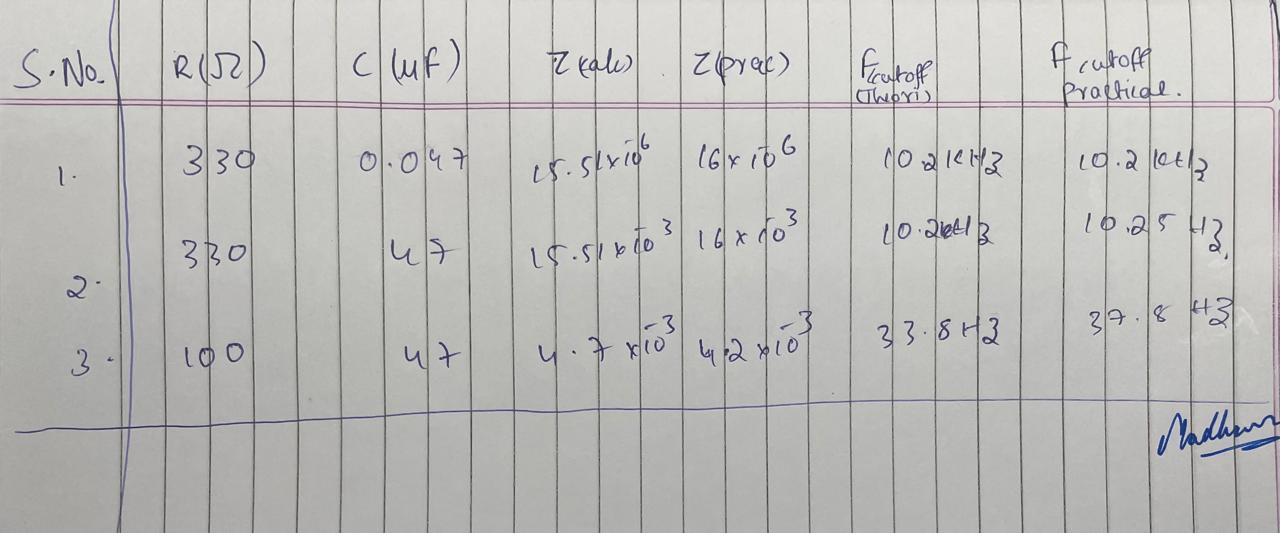 S.No. R(Ω) C (μf) Z(calc) Z(prac) Fcutoff (Theori) Fcutoff Practical.
1. 330 0.047 15.51×10⁶ 16×10⁶ 10.2KHz 10.2KHz
2. 330 47 15.51×10³ 16×10³ 10.2kHz 10.25 Hz.
3. 100 47 4.7×10⁻³ 4.2×10⁻³ 33.8Hz 37.8 Hz